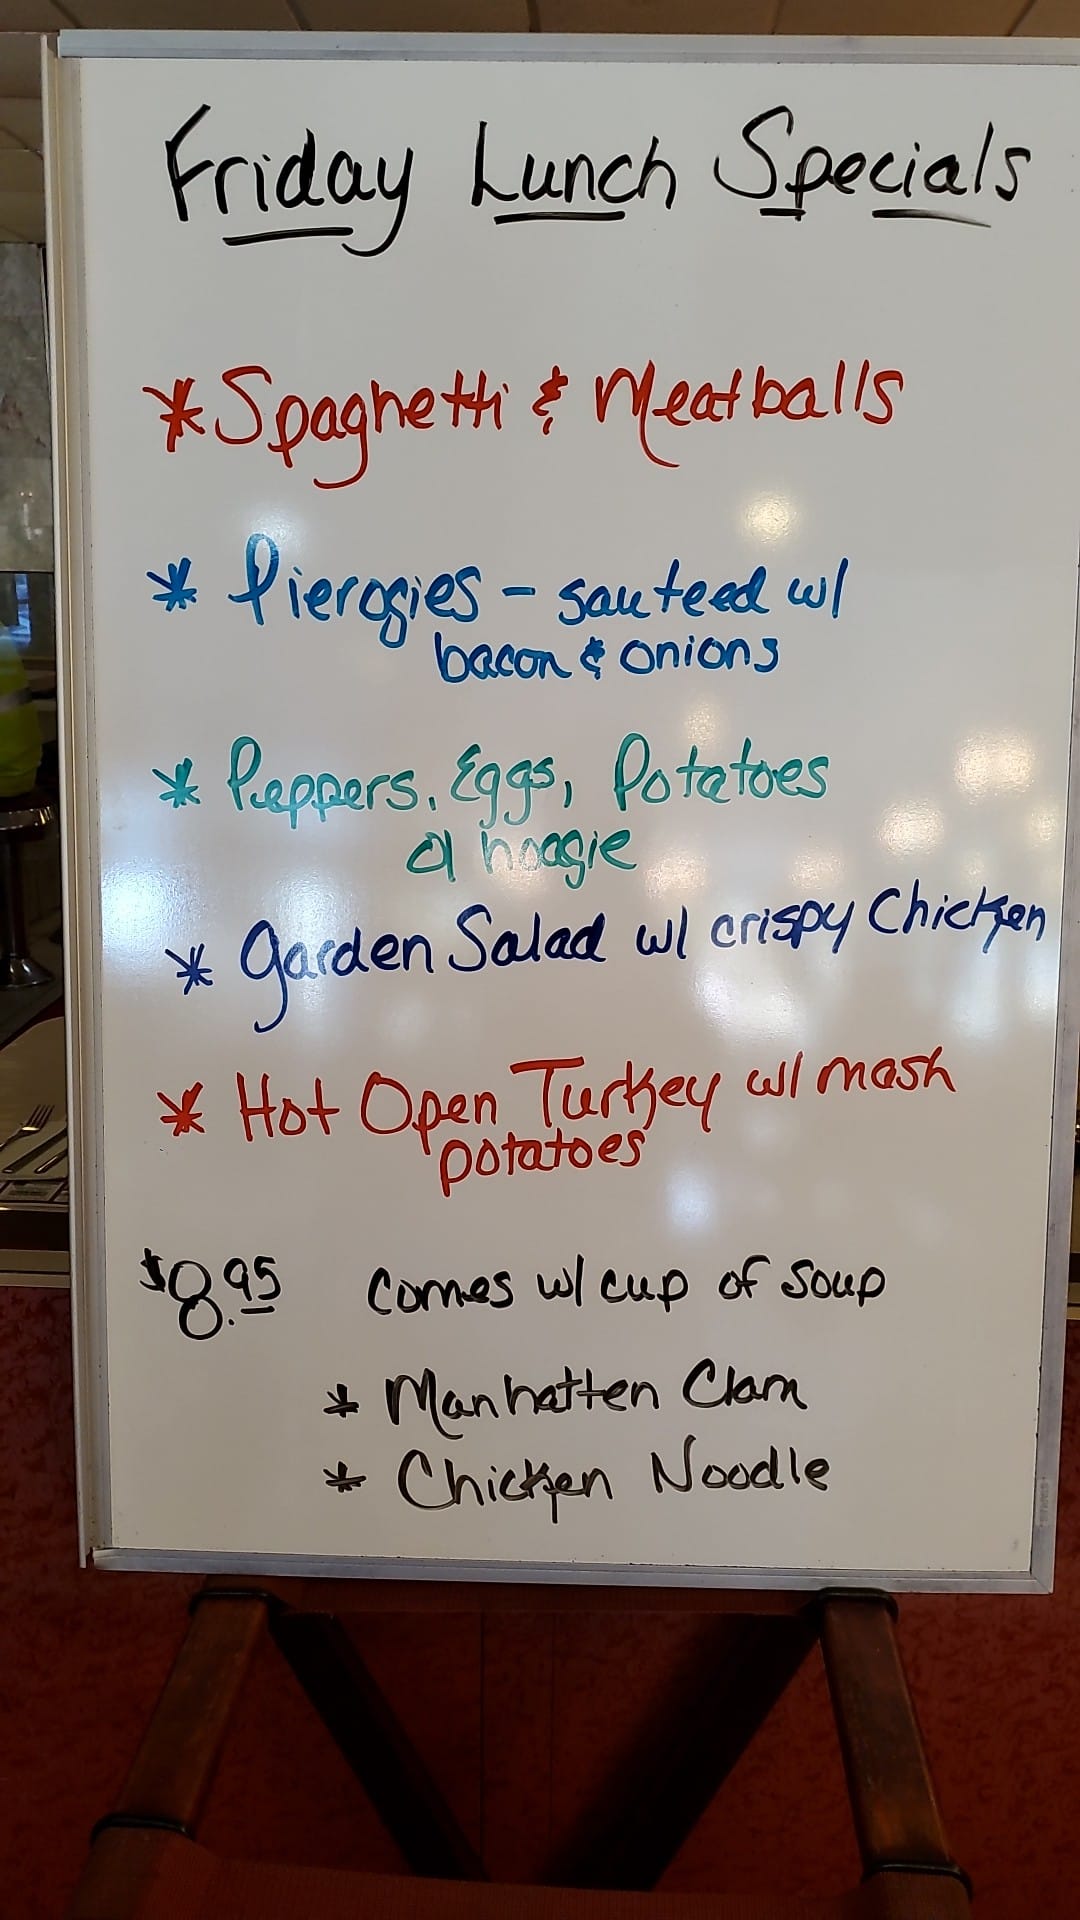 Friday Lunch Specials
* Spaghetti & Meatballs
* Pierogies - sauteed w/
bacon & onions
* Peppers, Eggs, Potatoes
hoagie
* Garden Salad w/ crispy Chicken
* Hot Open Turkey w/ mash
potatoes
$8.95 comes w/ cup of soup
* Manhatten Clam
* Chicken Noodle